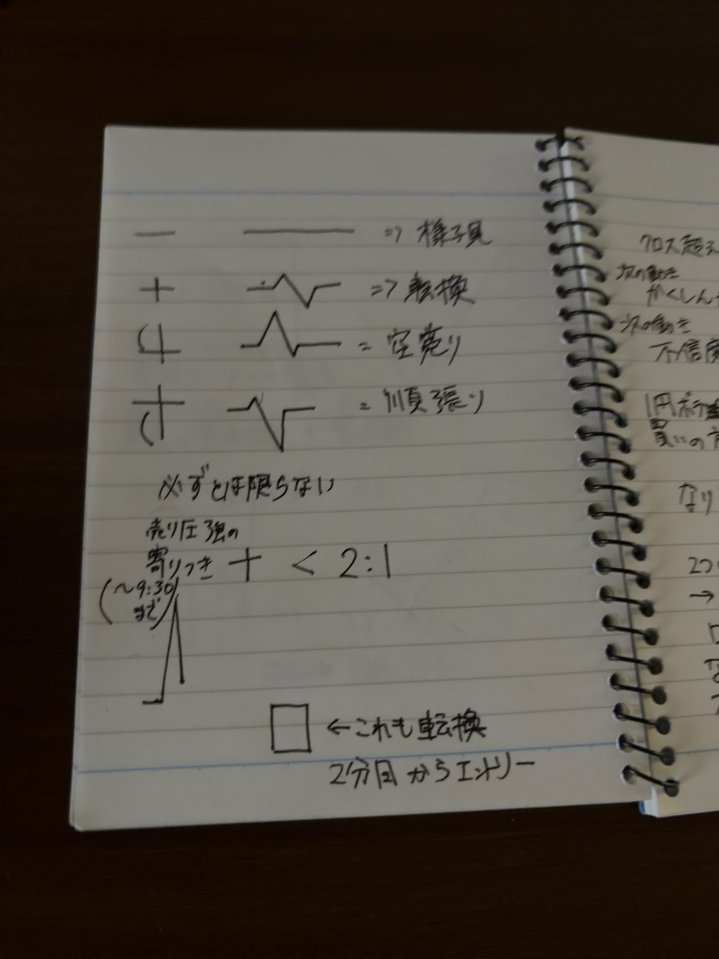 — ⇒ 様子見
+ ⇒ 転換
= 空売り
= 順張り
必ずとは限らない
売り圧強の
寄りつき + < 2:1
(~9:30
まで)
□ ←これも転換
2分目からエントリー
クロス超え
次の動き
かくしん
次の動き
不信
1円
買いの
なり
→